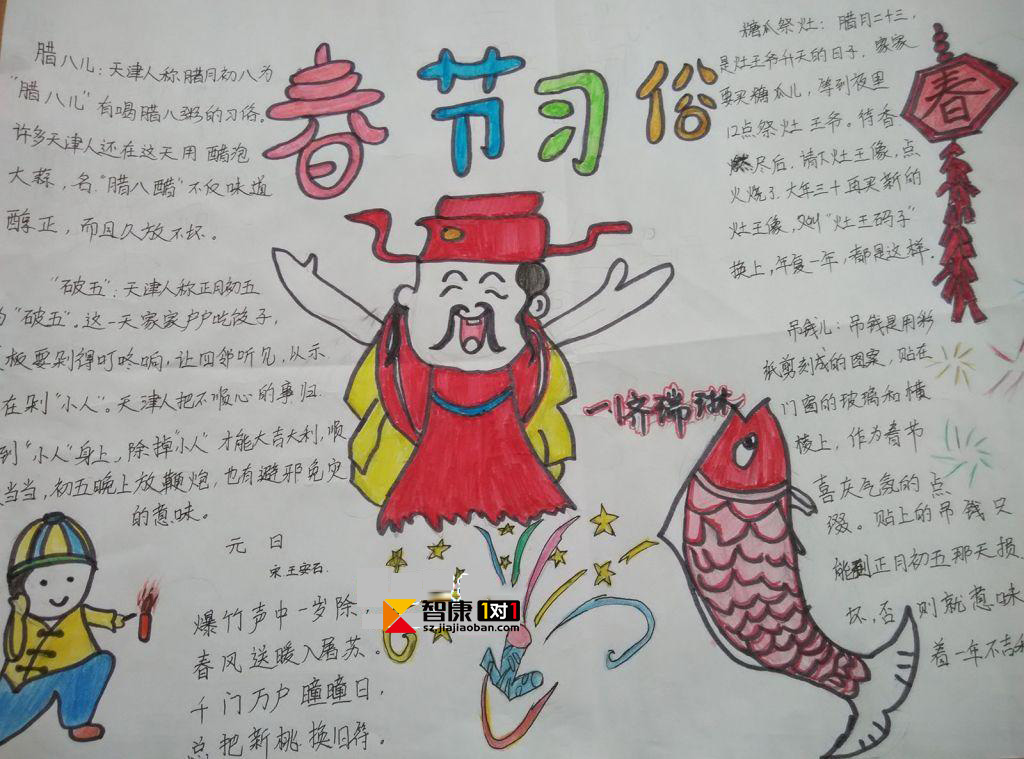 春节习俗
腊八儿：天津人称腊月初八为
“腊八儿”有喝腊八粥的习俗。
许多天津人还在这天用醋泡
大蒜，名“腊八醋”不仅味道
醇正，而且久放不坏。
“破五”：天津人称正月初五
“破五”。这一天家家户户吃饺子，
板要剁得叮咚响，让四邻听见，以示
在剁“小人”。天津人把不顺心的事归
到“小人”身上，除掉“小人”才能大吉大利，顺
当当，初五晚上放鞭炮，也有避邪免灾
的意味。
元日
宋王安石.
爆竹声中一岁除，
春风送暖入屠苏。
千门万户曈曈日，
总把新桃换旧符。
糖瓜祭灶：腊月二十三，
是灶王爷升天的日子.家家
要买糖瓜儿，等到夜里
12点祭灶王爷。待香
燃尽后.请下灶王像，点
火烧了.大年三十再买新的
灶王像，又叫“灶王码子”
换上，年复一年，都是这样.
春
吊钱儿：吊钱是用彩
纸剪刻成的图案，贴在
门窗的玻璃和横
棱上，作为春节
喜庆气氛的点
缀。贴上的吊钱只
能到正月初五那天损
坏，否则就意味
着一年不吉利
济瑞琳
智康1对1
sz.jiajiaoban.com